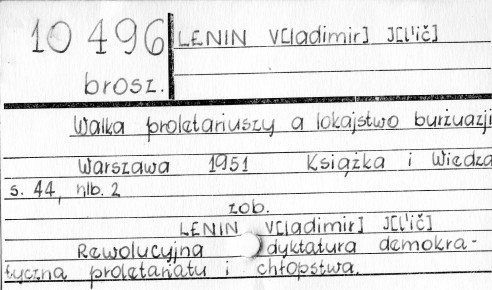 10 496
brosz.
LENIN V[ladimir] J[l'ič]
Walka proletariuszy a lokajstwo burżuazji
Warszawa 1951 Książka i Wiedza
s. 44, nlb. 2
zob.
LENIN V[ladimir] J[l'ič]
Rewolucyjna dyktatura demokra-
tyczna proletariatu i chłopstwa.